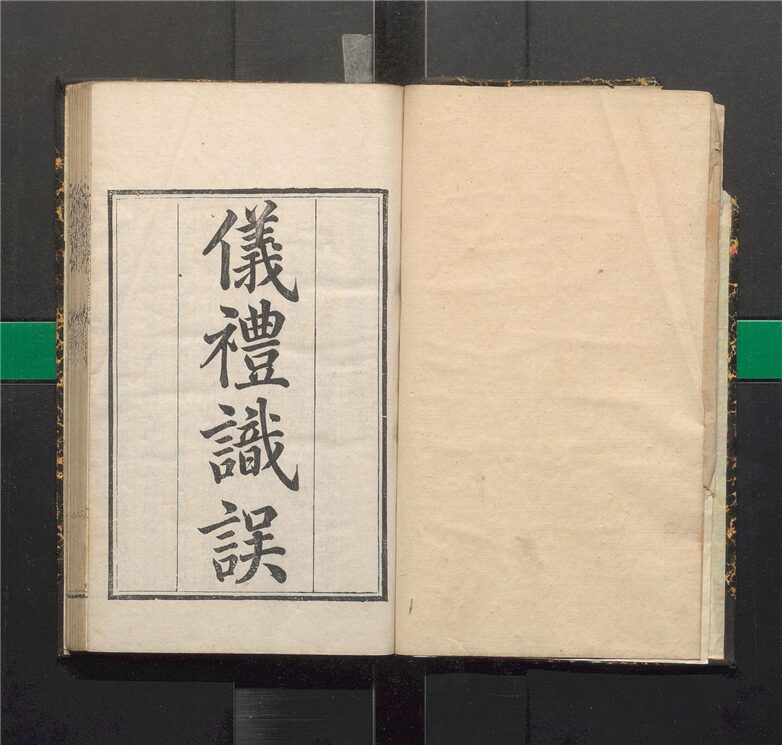 儀禮識誤